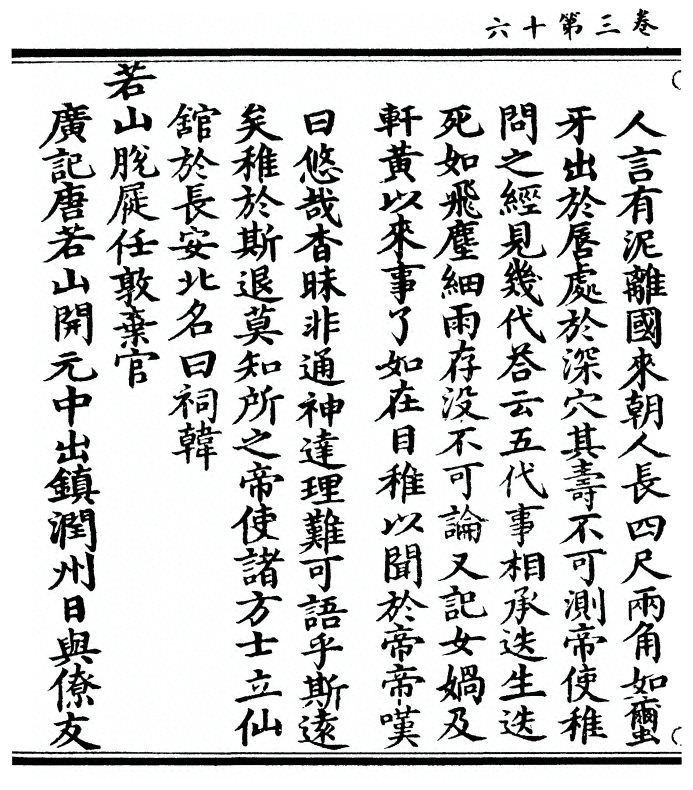 卷三第十六
人言有泥離國來朝人長四尺兩角如䖆
牙出於唇處於深穴其壽不可測帝使稚
問之經見幾代荅云五代事相承迭生迭
死如飛塵細雨存没不可論又記女媧及
軒黃以來事了如在目稚以聞於帝帝嘆
曰悠哉杳昧非通神達理難可語乎斯遠
矣稚於斯退莫知所之帝使諸方士立仙
舘於長安北名曰祠韓
若山脫屣任敦棄官
廣記唐若山開元中出鎮潤州日與僚友